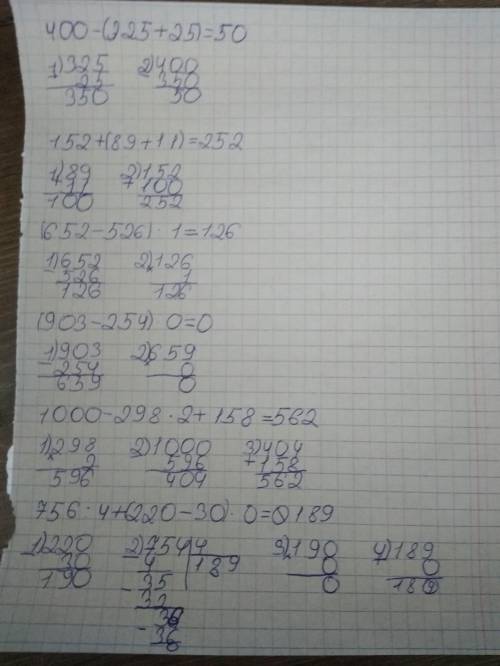 400-(325+25)=50
1)325 2)400
25 350
350 50
152+(89+11)=252
1)89 2)152
+11 +100
100 252
(652-526)·1=126
1)652 2)126
-526 1
126 126
(903-254) 0=0
1)903 2)659
-254 0
659 0
1000-298·2+158=562
1)298 2)1000 3)404
2 596 +158
596 404 562
756:4+(220-30)·0=189
1)220 2)756|4 3)190 4)189
30 4 189 0 0
190 -35 0 189
32
36
-36
0